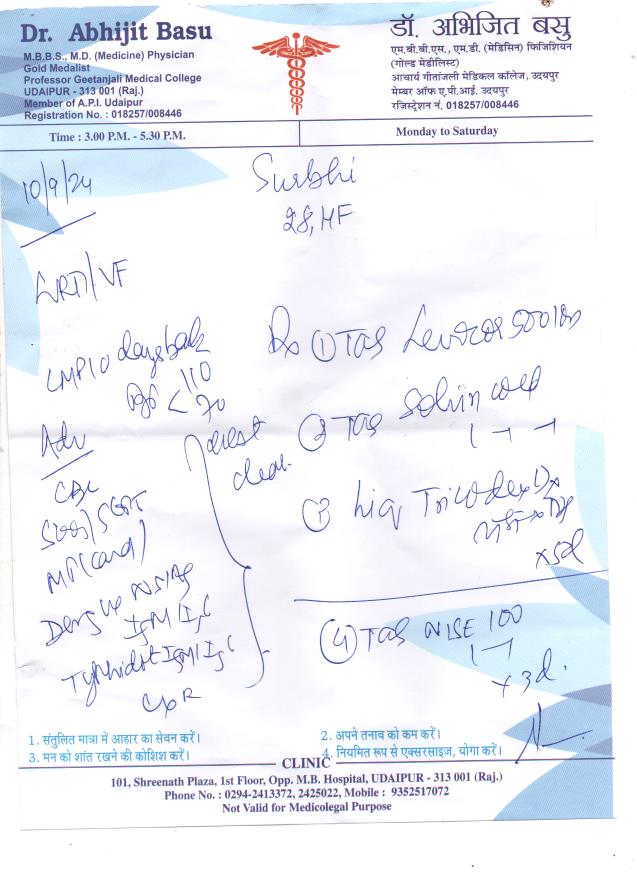 Dr. Abhijit Basu
M.B.B.S., M.D. (Medicine) Physician
Gold Medalist
Professor Geetanjali Medical College
UDAIPUR - 313 001 (Raj.)
Member of A.P.I. Udaipur
Registration No. : 018257/008446
डॉ. अभिजित बसु
एम.बी.बी.एस., एम.डी. (मेडिसिन) फिजिशियन
(गोल्ड मेडीलिस्ट)
आचार्य गीतांजली मेडिकल कॉलेज, उदयपुर
मेम्बर ऑफ ए.पी.आई. उदयपुर
रजिस्ट्रेशन नं. 018257/008446
Time : 3.00 P.M. - 5.30 P.M.
Monday to Saturday
10/9/24
Surbhi
28, HF
URTI/VF
LMP 10 days back
110
70
Adv
chest
clear
CBC
SGOT/SGPT
MP (card)
Dengue NS1Ag
IgM IgG
Typhidot IgM IgG
CXR
Rx ① TAB
② TAB
1 - 1
③ Liq
x 5d
④ TAB NISE 100
1 - 1
x 3d.
1. संतुलित मात्रा में आहार का सेवन करें।
2. अपने तनाव को कम करें।
3. मन को शांत रखने की कोशिश करें।
4. नियमित रूप से एक्सरसाइज, योगा करें।
CLINIC
101, Shreenath Plaza, 1st Floor, Opp. M.B. Hospital, UDAIPUR - 313 001 (Raj.)
Phone No. : 0294-2413372, 2425022, Mobile : 9352517072
Not Valid for Medicolegal Purpose